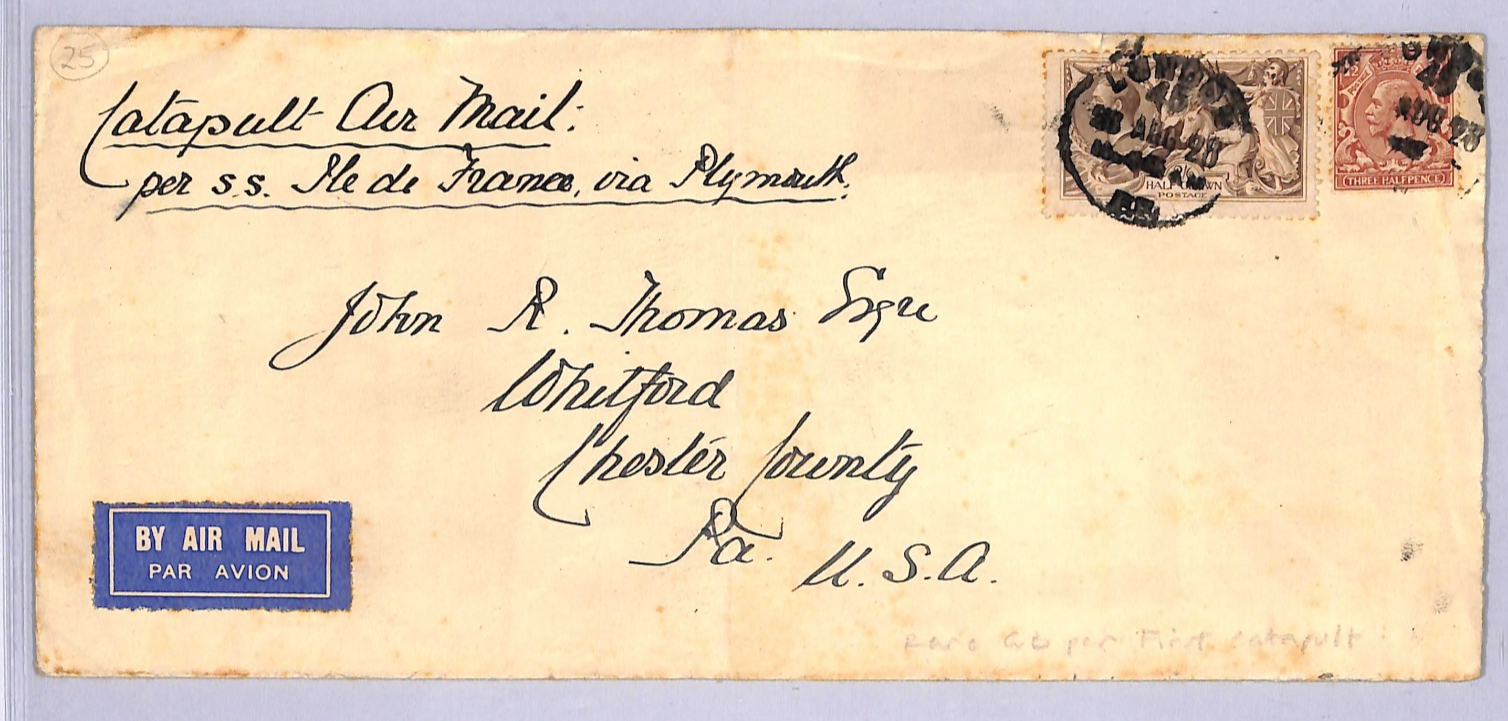 25
Catapult Air Mail:
per s.s. Ile de France, via Plymouth.
LONDON
28 AUG 28
HALF CROWN
POSTAGE
AUG 28
(THREE HALFPENCE)
John R. Thomas Esqre
Whitford
Chester County
Pa. U.S.A.
BY AIR MAIL
PAR AVION
Rare GB per First Catapult